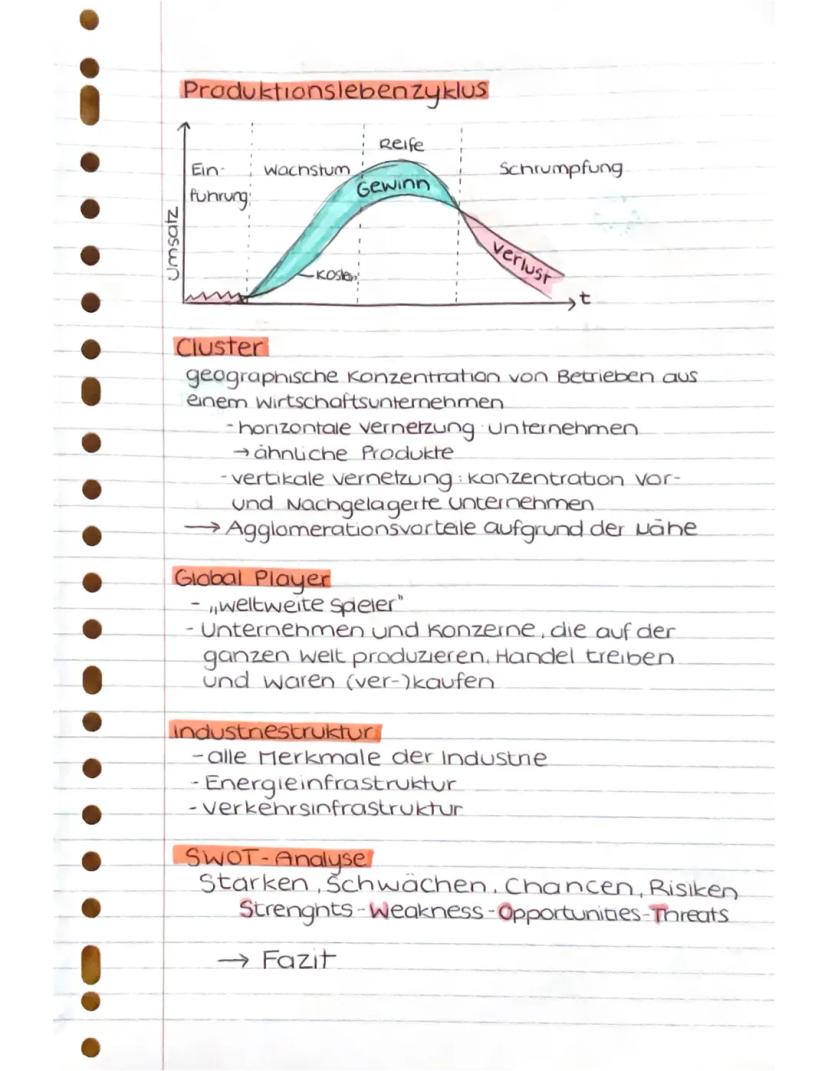 Produktionslebenzyklus
Reife
Ein- Wachstum Schrumpfung
führung
Gewinn
Umsatz
Verlust
Kosten
t
Cluster
geographische Konzentration von Betrieben aus
einem Wirtschaftsunternehmen
- horizontale Vernetzung Unternehmen
→ ähnliche Produkte
- vertikale Vernetzung: Konzentration Vor-
und Nachgelagerte Unternehmen
→ Agglomerationsvorteile aufgrund der Nähe
Global Player
- „weltweite Speler"
- Unternehmen und Konzerne, die auf der
ganzen Welt produzieren, Handel treiben
und Waren (ver-)kaufen
Industriestruktur
- alle Merkmale der Industrie
- Energieinfrastruktur
- Verkehrsinfrastruktur
SWOT-Analyse
Stärken, Schwächen, Chancen, Risiken
Strenghts-Weakness-Opportunities-Threats
→ Fazit